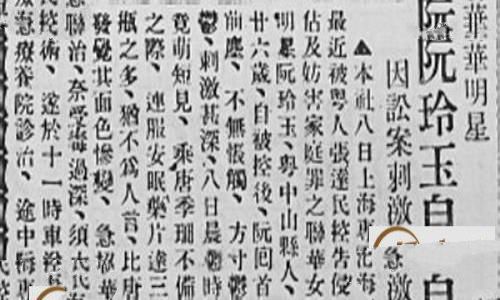 華華明星
阮阮玲玉自
因訟案刺激急激
▲本社八日上海専
最近被粵人張達民控告侵
佔及妨害家庭罪之聯華女
明星阮玲玉、粵中山縣人、
廿六歲、自被控後、阮囘首
前塵、不無悵觸、方寸鬱
鬱、刺激甚深、八日晨鬱時
竟萌短見、乘唐季珊不備
之際、連服安眠藥片達三
瓶之多、猶不爲人言、比唐
發覺其面色慘變、急招華
聯治、奈受毒過深、須
民控術、遂於十一時車
急療養院診治、途中海